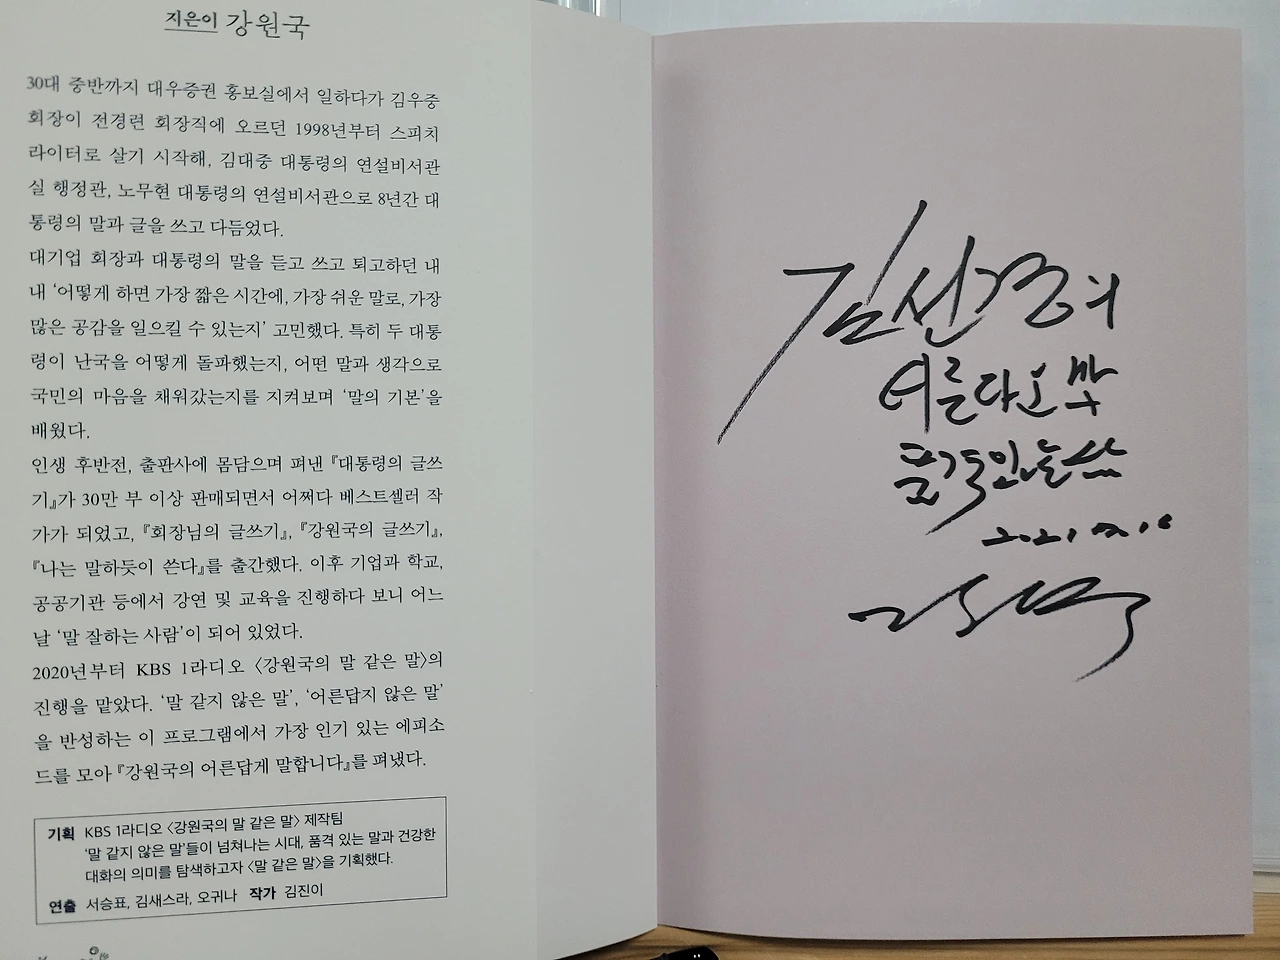 지은이 강원국
30대 중반까지 대우증권 홍보실에서 일하다가 김우중
회장이 전경련 회장직에 오르던 1998년부터 스피치
라이터로 살기 시작해, 김대중 대통령의 연설비서관
실 행정관, 노무현 대통령의 연설비서관으로 8년간 대
통령의 말과 글을 쓰고 다듬었다.
대기업 회장과 대통령의 말을 듣고 쓰고 퇴고하던 내
내 ‘어떻게 하면 가장 짧은 시간에, 가장 쉬운 말로, 가장
많은 공감을 일으킬 수 있는지’ 고민했다. 특히 두 대통
령이 난국을 어떻게 돌파했는지, 어떤 말과 생각으로
국민의 마음을 채워갔는지를 지켜보며 ‘말의 기본’을
배웠다.
인생 후반전, 출판사에 몸담으며 펴낸 『대통령의 글쓰
기』가 30만 부 이상 판매되면서 어쩌다 베스트셀러 작
가가 되었고, 『회장님의 글쓰기』, 『강원국의 글쓰기』,
『나는 말하듯이 쓴다』를 출간했다. 이후 기업과 학교,
공공기관 등에서 강연 및 교육을 진행하다 보니 어느
날 ‘말 잘하는 사람’이 되어 있었다.
2020년부터 KBS 1라디오 〈강원국의 말 같은 말〉의
진행을 맡았다. ‘말 같지 않은 말’, ‘어른답지 않은 말’
을 반성하는 이 프로그램에서 가장 인기 있는 에피소
드를 모아 『강원국의 어른답게 말합니다』를 펴냈다.
기획 KBS 1라디오 〈강원국의 말 같은 말〉 제작팀
‘말 같지 않은 말’들이 넘쳐나는 시대, 품격 있는 말과 건강한
대화의 의미를 탐색하고자 〈말 같은 말〉을 기획했다.
연출 서승표, 김새스라, 오귀나 작가 김진이
김선경의
어른다운 말
품격있는 삶
2021